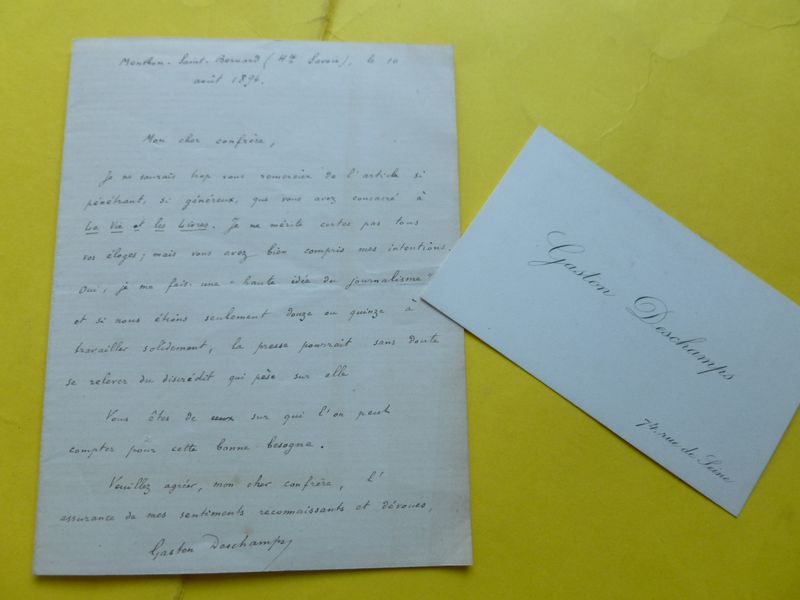 Menthon-Saint-Bernard (Hte Savoie), le 10
août 1894.
Mon cher confrère,
Je ne saurais trop vous remercier de l'article si
pénétrant, si généreux, que vous avez consacré à
La Vie et les Livres. Je ne mérite certes pas tous
vos éloges; mais vous avez bien compris mes intentions.
Oui, je me fais une "haute idée du journalisme"
et si nous étions seulement douze ou quinze à
travailler solidement, la presse pourrait sans doute
se relever du discrédit qui pèse sur elle
Vous êtes de ceux sur qui l'on peut
compter pour cette bonne besogne.
Veuillez agréer, mon cher confrère, l'
assurance de mes sentiments reconnaissants et dévoués,
Gaston Deschamps
Gaston Deschamps
74, rue de Seine